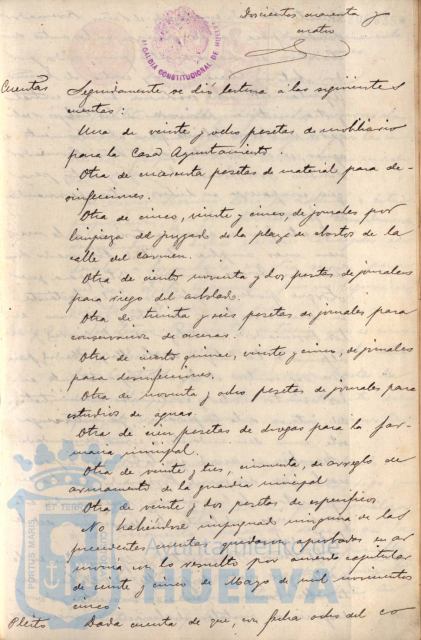 Doscientos cuarenta y
cuatro
ALCALDIA CONSTITUCIONAL DE HUELVA
Cuentas Seguidamente se dió lectura a las siguientes
cuentas:
Una de veinte y ocho pesetas de mobiliario
para la Casa Ayuntamiento.
Otra de cuarenta pesetas de material para de-
sinfecciones.
Otra de cinco, veinte y cinco, de jornales, por
limpieza del juzgado de la plaza de abastos de la
calle del Carmen.
Otra de ciento noventa y dos pesetas de jornales
para riego del arbolado.
Otra de treinta y seis pesetas de jornales para
conservacion de aceras.
Otra de ciento quince, veinte y cinco, de jornales
para desinfecciones.
Otra de noventa y ocho pesetas de jornales para
estudios de aguas.
Otra de cien pesetas de drogas para la far-
macia municipal.
Otra de veinte y tres, cincuenta, de arreglo de
armamento de la guardia municipal
Otra de veinte y dos pesetas de especificos
No habiéndose impugnado ninguna de las
precedentes cuentas quedaron aprobadas en ar
monia con lo resuelto por acuerdo capitular
de veinte y cinco de Mayo de mil novecientos
cinco.
Pleito Dada cuenta de que, con fecha ocho del co
PORTUS MARIS ET TERRAE
Ayuntamiento de
HUELVA